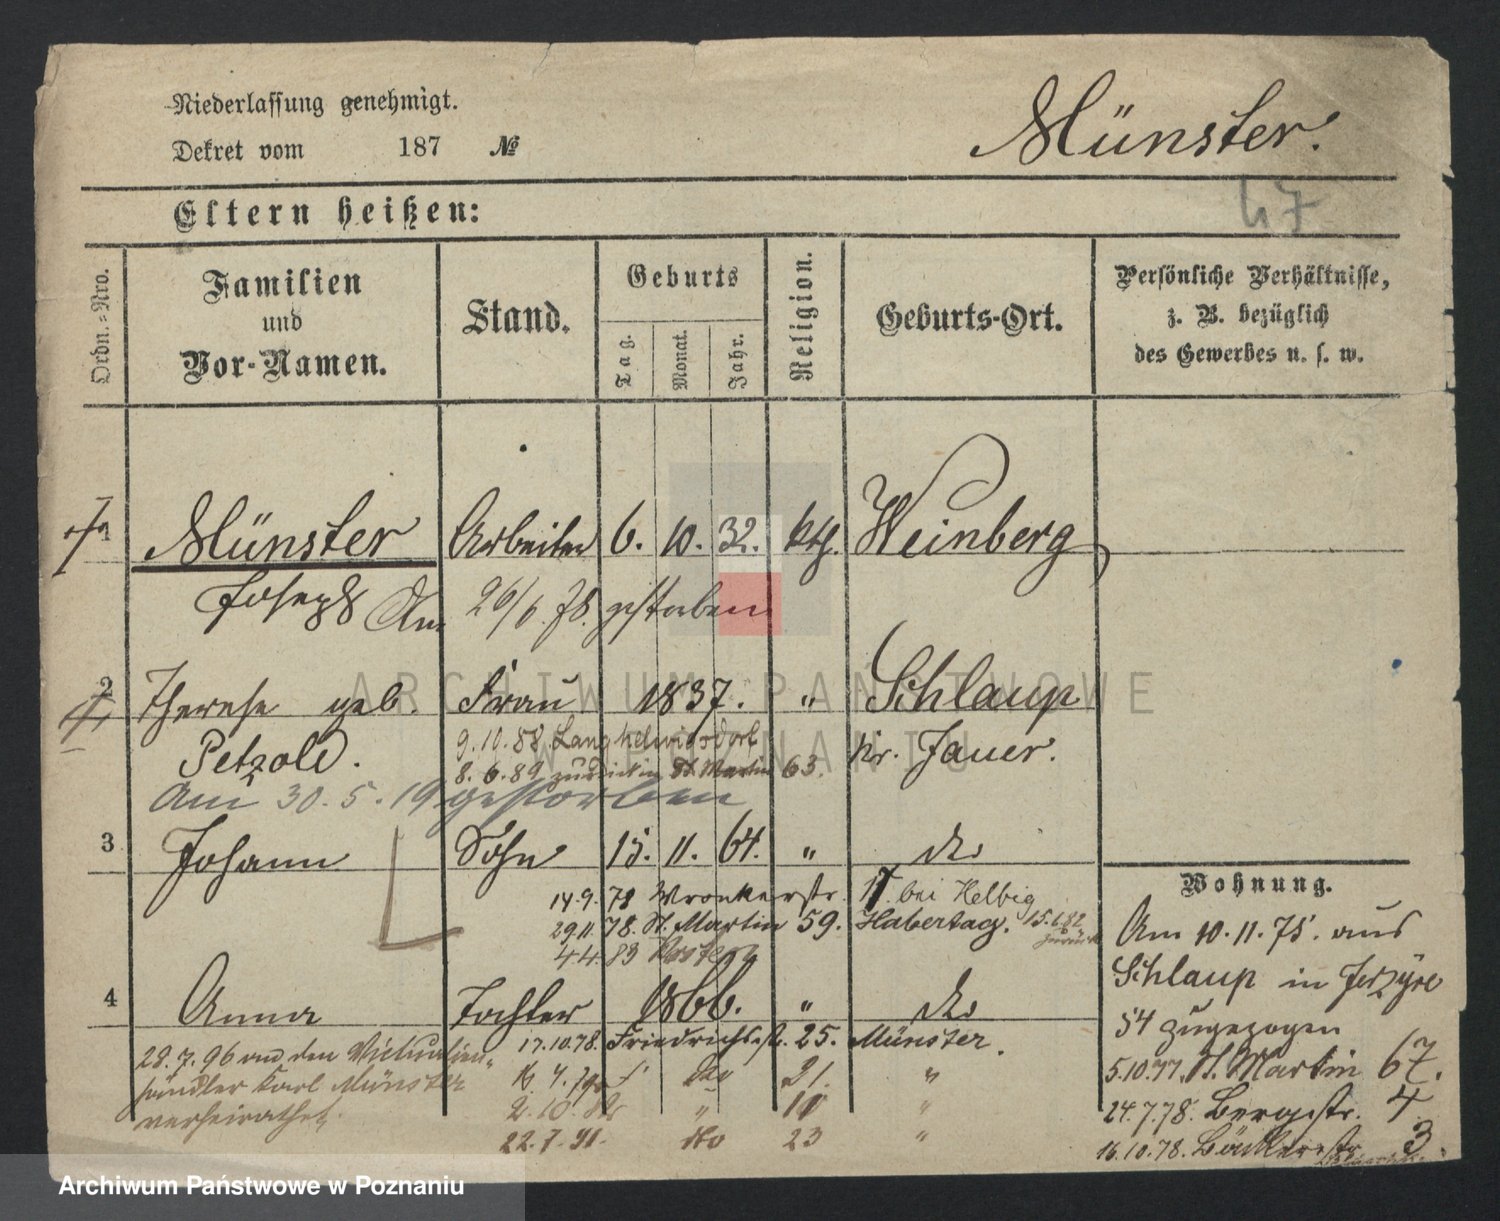 Niederlassung genehmigt.
Dekret vom 187 №
Münster.
47
Eltern heißen:
Ordn.-Nro.
Familien
und
Vor-Namen.
Stand.
Geburts
Tag.
Monat.
Jahr.
Religion.
Geburts-Ort.
Persönliche Verhältnisse,
z. B. bezüglich
des Gewerbes u. s. w.
1 Münster Arbeiter 6. 10. 32. kth. Weinberg
Joseph Am 26/6. 78. gestorben
2 Therese geb. Frau 1837. " Schlaup
Petzold. Kr. Jauer.
9.10.88. Langhelwigsdorf
8.6.89 zurück in St. Martin 63.
Am 30.5.19 gestorben
3 Johann Sohn 15. 11. 64. " do
14.9.78 Wronkerstr. bei Helbig
29.11.78. St. Martin 59. Habertag. 15.1.82
zurück
4.4.83
4 Anna Tochter 1866. " do
17.10.78. Friedrichstr. 25. Münster.
21. "
2.10. " "
22.7.91. do 23 "
29.7.96 an den Victualien-
händler Karl Münster
verheirathet.
Wohnung.
Am 10.11.75. aus
Schlaup in Jerzyce
54 zugezogen
5.10.77. St. Martin 67.
24.7.78. Bergstr. 4
16.10.78. Bäckerstr. 3.
ARCHIWUM PAŃSTWOWE
W POZNANIU
Archiwum Państwowe w Poznaniu